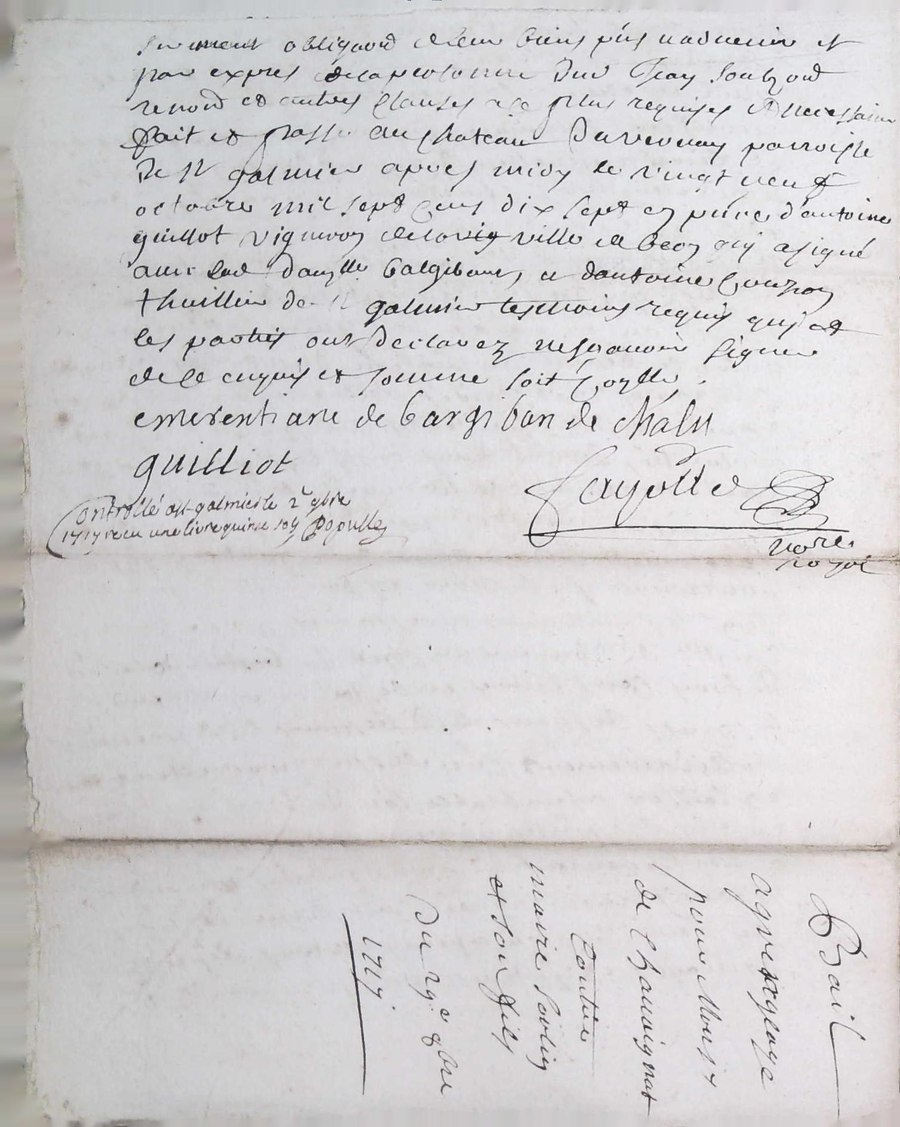 serment obligaon de leur biens pñs & advenir et
par expres de la personne dud Jean
renon et autres clauses a ce plus requises & necessaire
fait et passé au chateau Duvernay parroisse
De St galmier apres midy le vingt neuf
octobre mil sept cens dix sept en pñce d'antoine
guillot vigneron de ville qui a signé
avec lad Damlle & d'antoine
thuillier de St galmier tesmoins requis qui et
les parties ont declarez ne sçavoir signer
de ce enquis et somme soit Coylle.
emerentiane de bargiban de chalu
guilliot
Controllé a st galmier le 2e 9bre
1717 reçu une livre quinse sols
Cayotte
nore.
royal
Bail
a grangeage
pour Mons r
de Chauvignat
Contre
marie
et son fils
Du 29e 8bre
1717